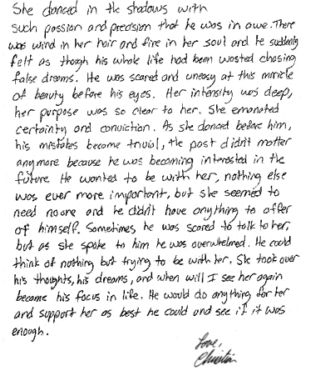 She danced in the shadows with
such passion and precision that he was in awe. There
was wind in her hair and fire in her soul and he suddenly
felt as though his whole life had been wasted chasing
false dreams. He was scared and uneasy at this miracle
of beauty before his eyes. Her intensity was deep,
her purpose was so clear to her. She emanated
certainty and conviction. As she danced before him,
his mistakes became trivial, the past didn't matter
anymore because he was becoming interested in the
future. He wanted to be with her, nothing else
was ever more important, but she seemed to
need no one and he didn't have anything to offer
of himself. Sometimes he was scared to talk to her,
but as she spoke to him he was overwhelmed. He could
think of nothing but trying to be with her. She took over
his thoughts, his dreams, and when will I see her again
became his focus in life. He would do anything for her
and support her as best he could and see if it was
enough.
Love,